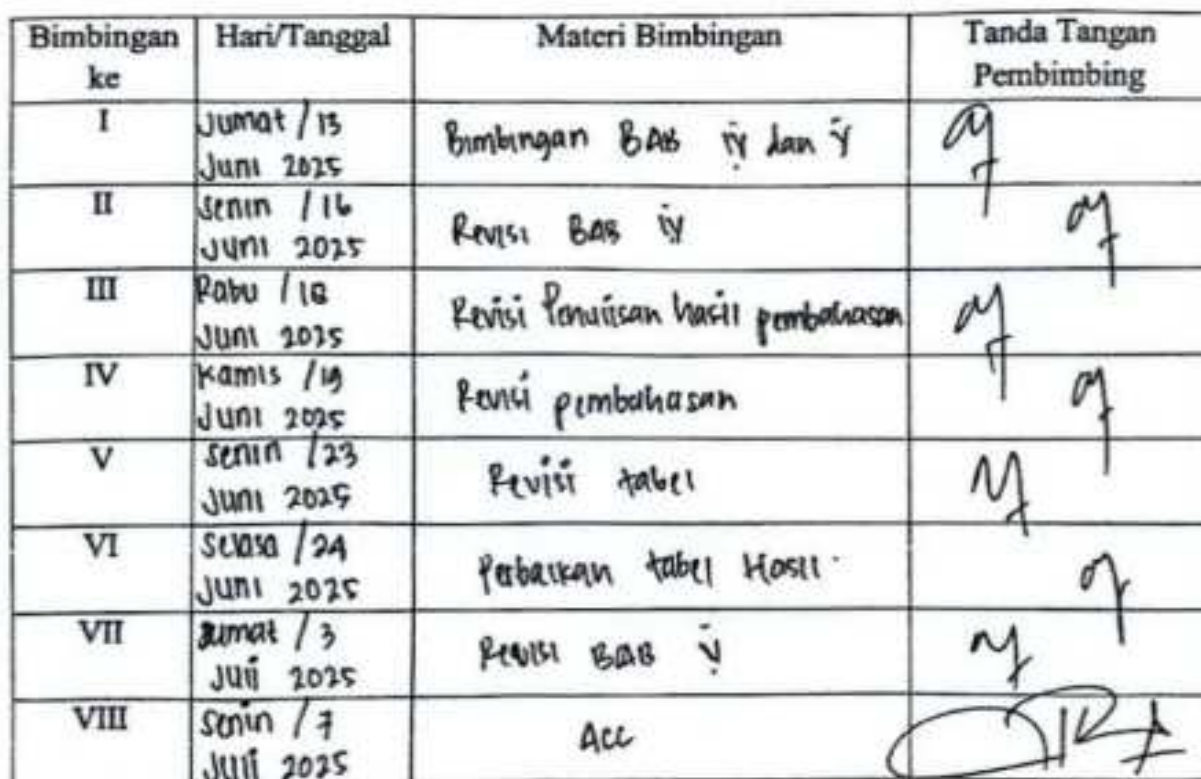 Bimbingan ke | Hari/Tanggal | Materi Bimbingan | Tanda Tangan Pembimbing
I | Jumat / 13 Juni 2025 | Bimbingan BAB IV dan V
II | Senin / 16 Juni 2025 | Revisi BAB IV
III | Rabu / 18 Juni 2025 | Revisi Penulisan hasil pembahasan
IV | Kamis / 19 Juni 2025 | Revisi pembahasan
V | Senin / 23 Juni 2025 | Revisi tabel
VI | Selasa / 24 Juni 2025 | Perbaikan tabel Hasil
VII | Jumat / 3 Juli 2025 | Revisi BAB V
VIII | Senin / 7 Juli 2025 | Acc